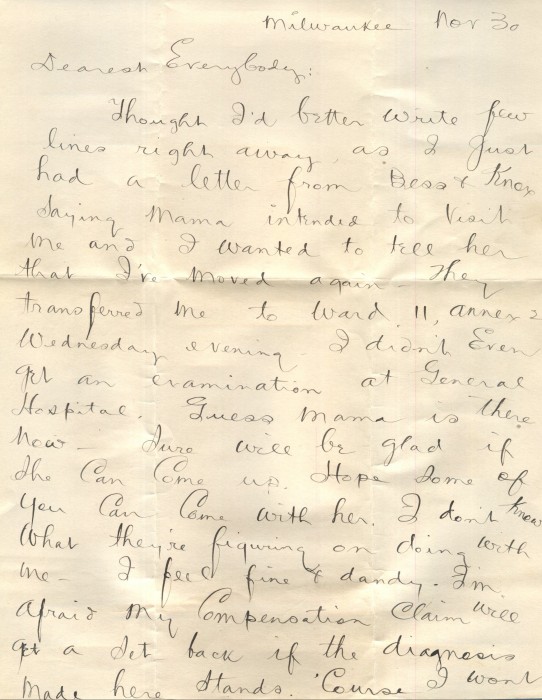 Milwaukee Nov 30
Dearest Everybody:
Thought I'd better write few
lines right away, as I just
had a letter from Bess & Knox
saying Mama intended to visit
me and I wanted to tell her
that I've moved again - They
transferred me to Ward 11, annex 2
Wednesday evening. I didn't Even
get an examination at General
Hospital. Guess Mama is there
now - Sure will be glad if
she Can Come up. Hope some of
you Can Come with her. I don't know
what they're figuring on doing with
me - I feel fine & dandy. I'm
afraid my Compensation Claim will
get a set back if the diagnosis
made here stands. 'Course I wont